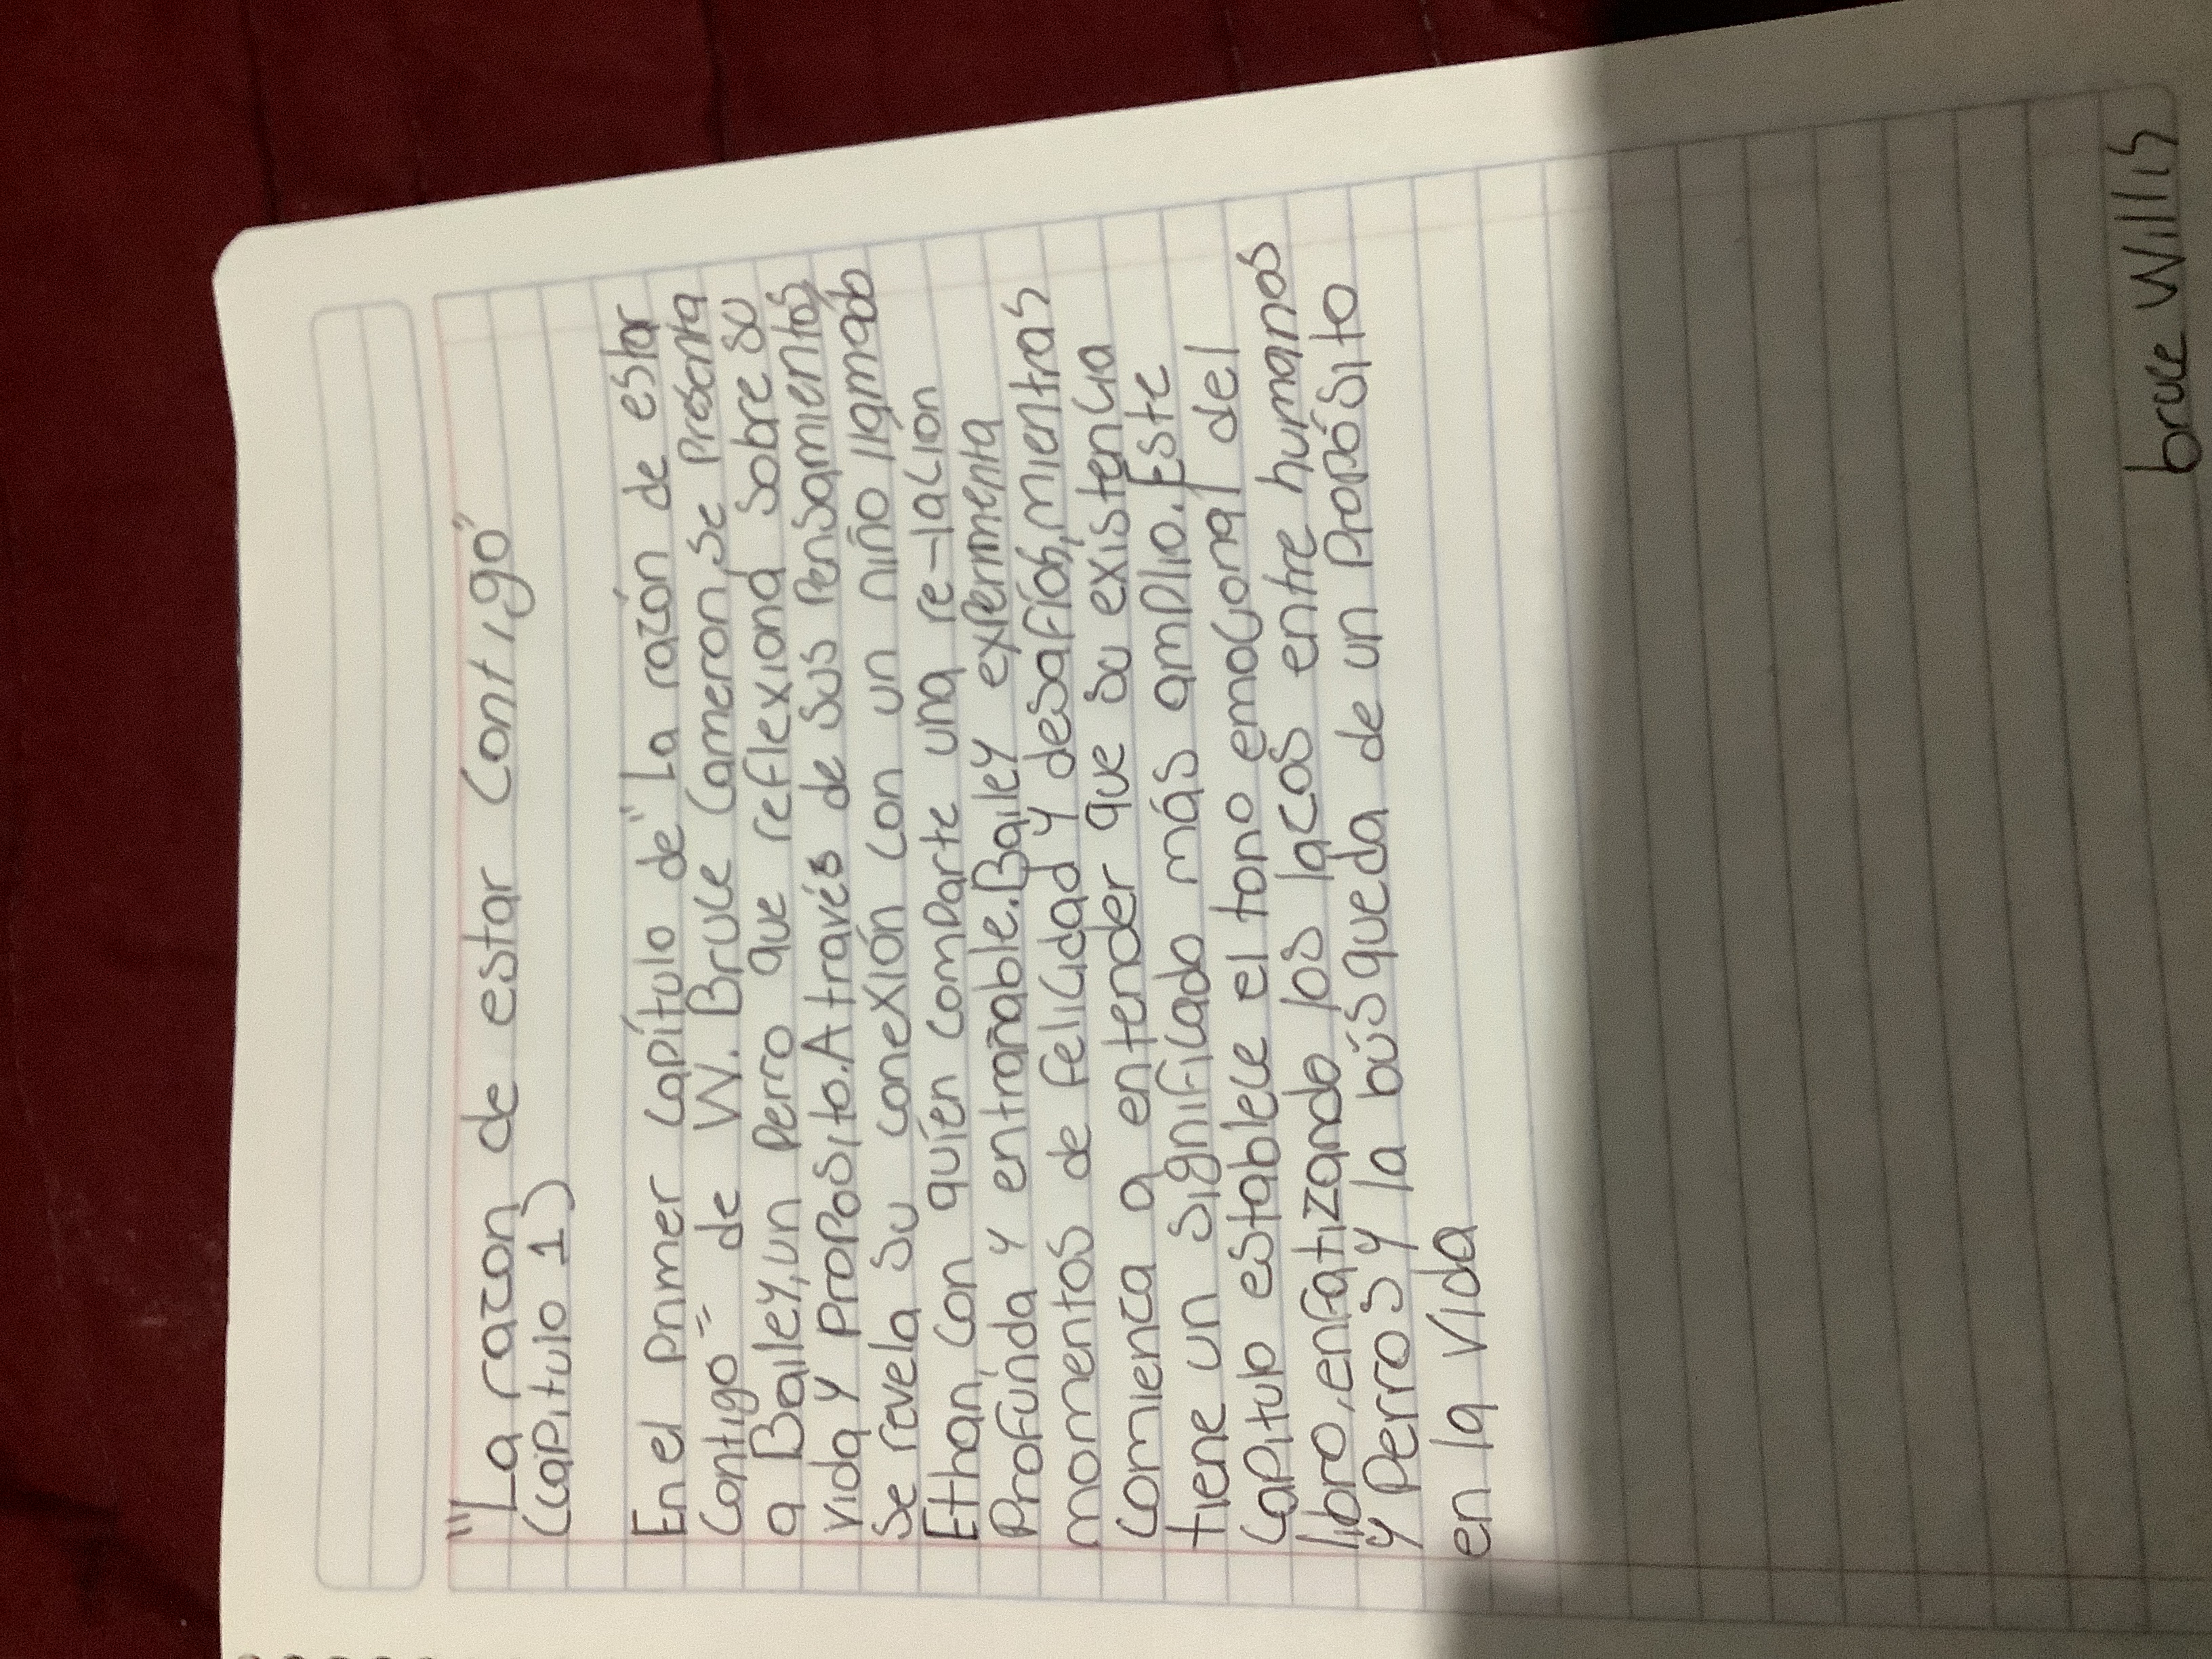 "La razon de estar contigo"
(capitulo 1)
En el primer capítulo de "La razón de estar
contigo" de W. Bruce Cameron, se presenta
a Bailey, un perro que reflexiona sobre su
vida y proposito. A través de sus pensamientos
se revela su conexión con un niño llamado
Ethan, con quién comparte una re-lación
profunda y entrañable. Bailey experimenta
momentos de felicidad y desafíos, mientras
comienza a entender que su existencia
tiene un significado más amplio. Este
capítulo establece el tono emocional del
libro, enfatizando los lazos entre humanos
y perros y la búsqueda de un propósito
en la vida
bruce Willis